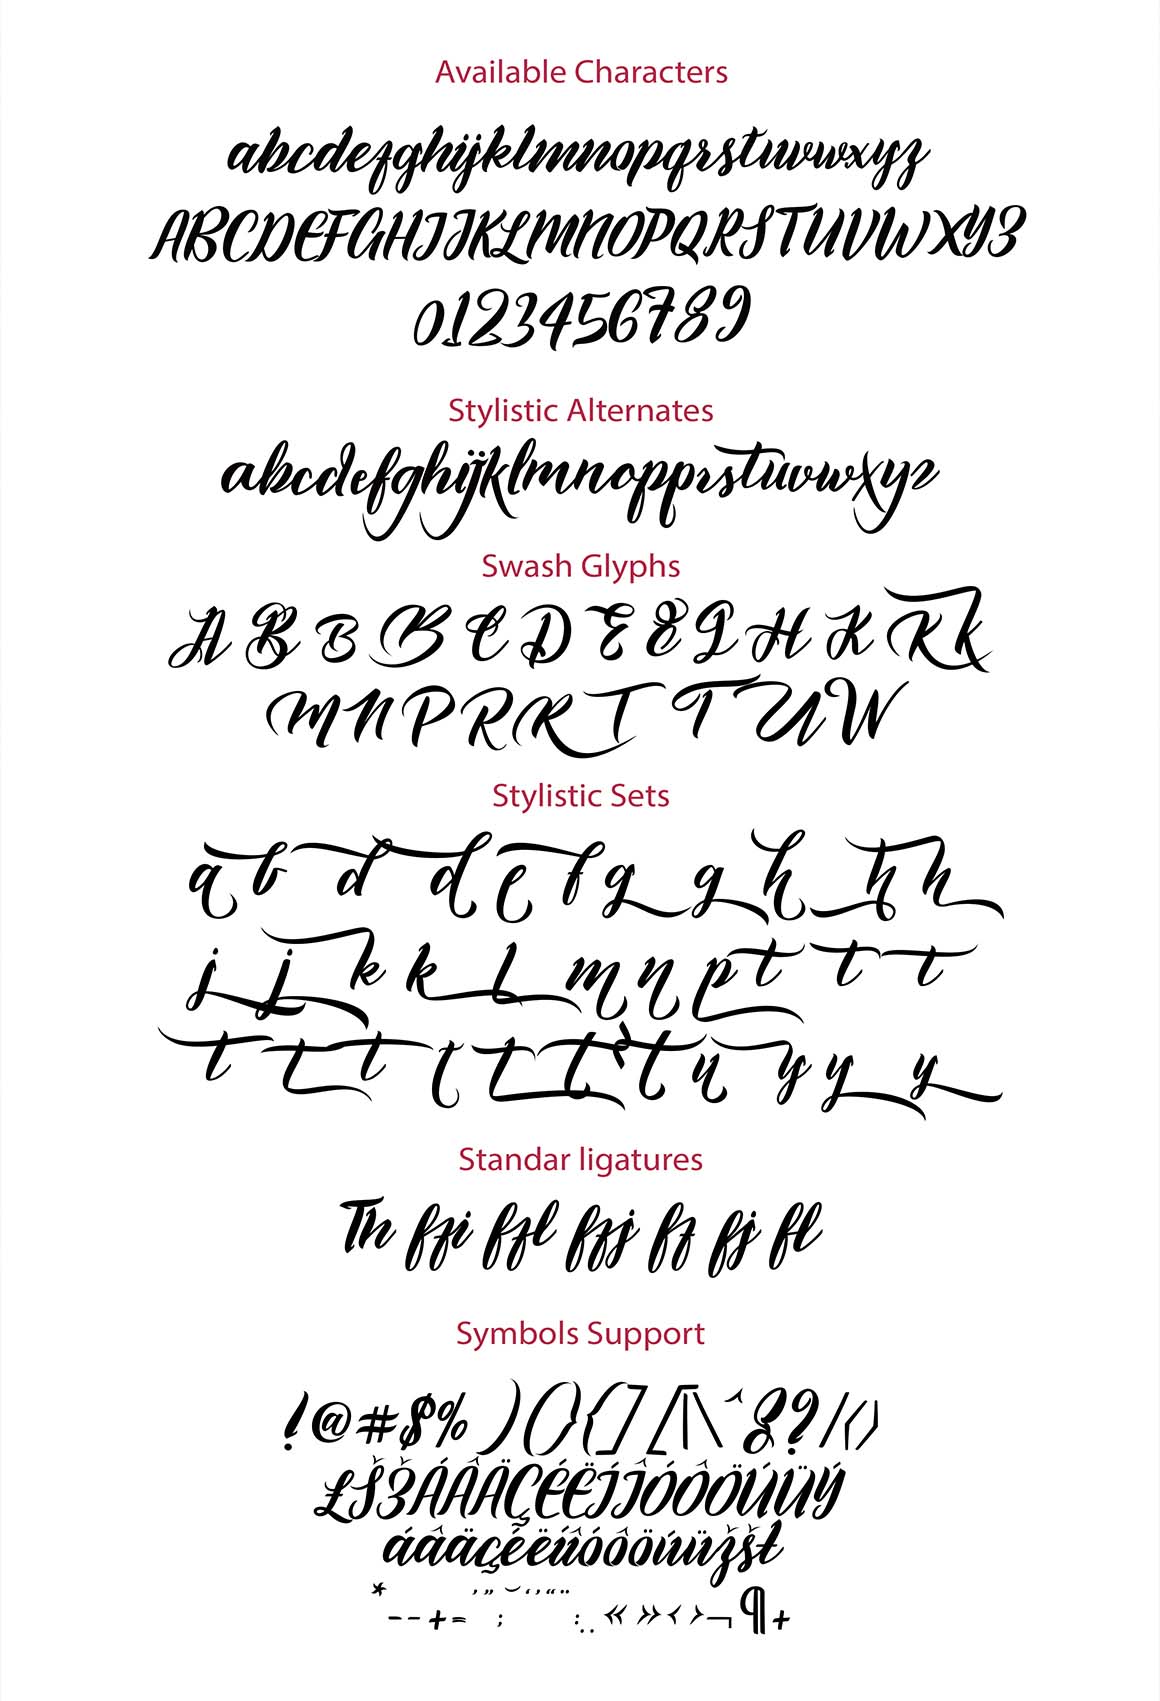 Available Characters
abcdefghijklmnopqrstuvwxyz
ABCDEFGHIJKLMNOPQRSTUVWXYZ
0123456789
Stylistic Alternates
abcdefghijklmnopprstuvwxyz
Swash Glyphs
A B B B C D E E G H K R K
M N P R R T T U W
Stylistic Sets
a b d d e f g g h h h
j j k k l m n p t t t
t t t t t t t u y y y
Standar ligatures
Th ffi ffl ffj ff fj fl
Symbols Support
!@#$%)(){[]/[\^&?/‹›
£ŠŽÁÂÄÇÉËÍÎÓÔÖÚÜÝ
áâäçéëíîóôöúüžšł
* - - + = ; : . . « » ‹ › ¬ ¶ +